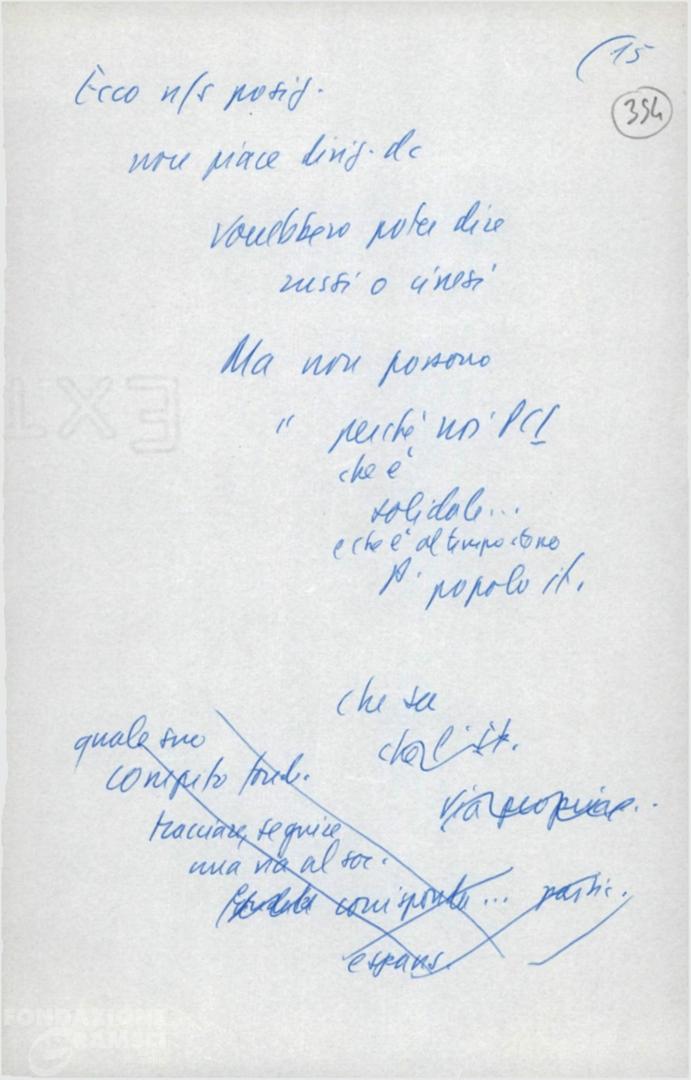 (15
354
Ecco n/s posiz.
non piace dirig. dc
vorrebbero poter dire
russi o cinesi
Ma non possono
" perché noi PCI
che è
solidale...
e che è al tempo stesso
P. popolo it.
che sa
che l'it.
quale suo
compito fond.
via propria..
tracciare, seguire
una via al soc.
corrisponda... partic.
espans.
EXT
FONDAZIONE
GRAMSCI